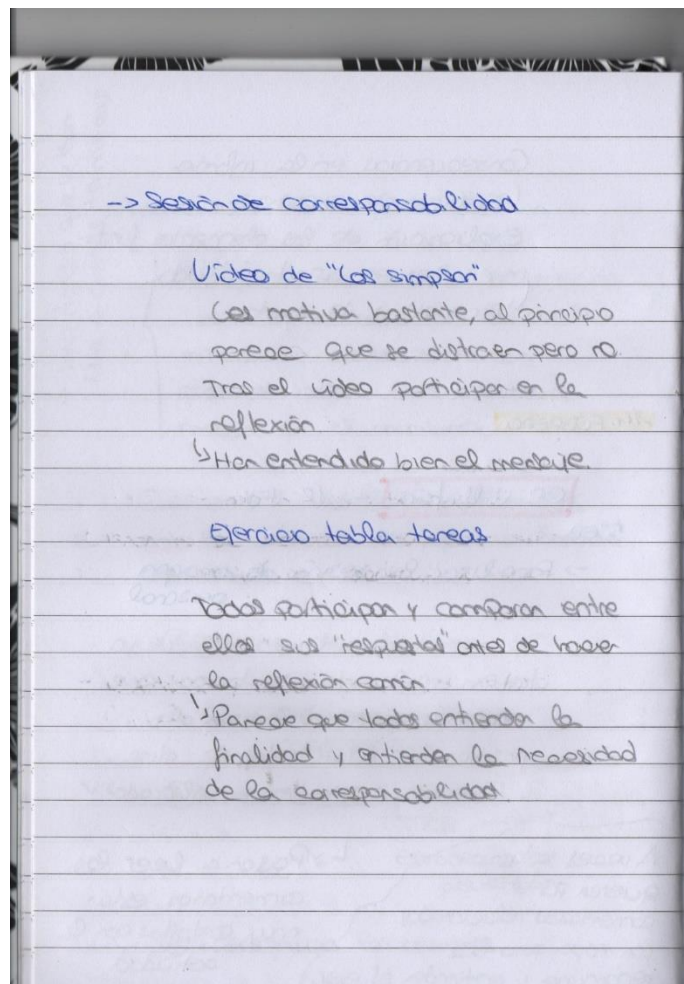 -> Sesión de corresponsabilidad
Vídeo de "Los simpson"
Les motiva bastante, al principio
parece que se distraen pero no.
Tras el vídeo participan en la
reflexión
↳ Han entendido bien el mensaje.
Ejercicio tabla tareas
Todos participan y comparan entre
ellos sus "respuestas" antes de hacer
la reflexión común
↳ Parece que todos entienden la
finalidad y entienden la necesidad
de la corresponsabilidad.